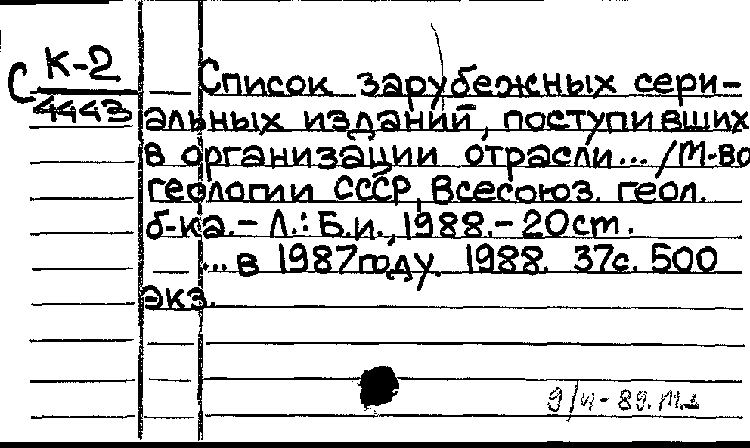 С К-2
4443
Список зарубежных сери-
альных изданий, поступивших
в организации отрасли... /М-во
геологии СССР, Всесоюз. геол.
б-ка. – Л.: Б.и., 1988. – 20см.
... в 1987 году. 1988. 37с. 500
экз.